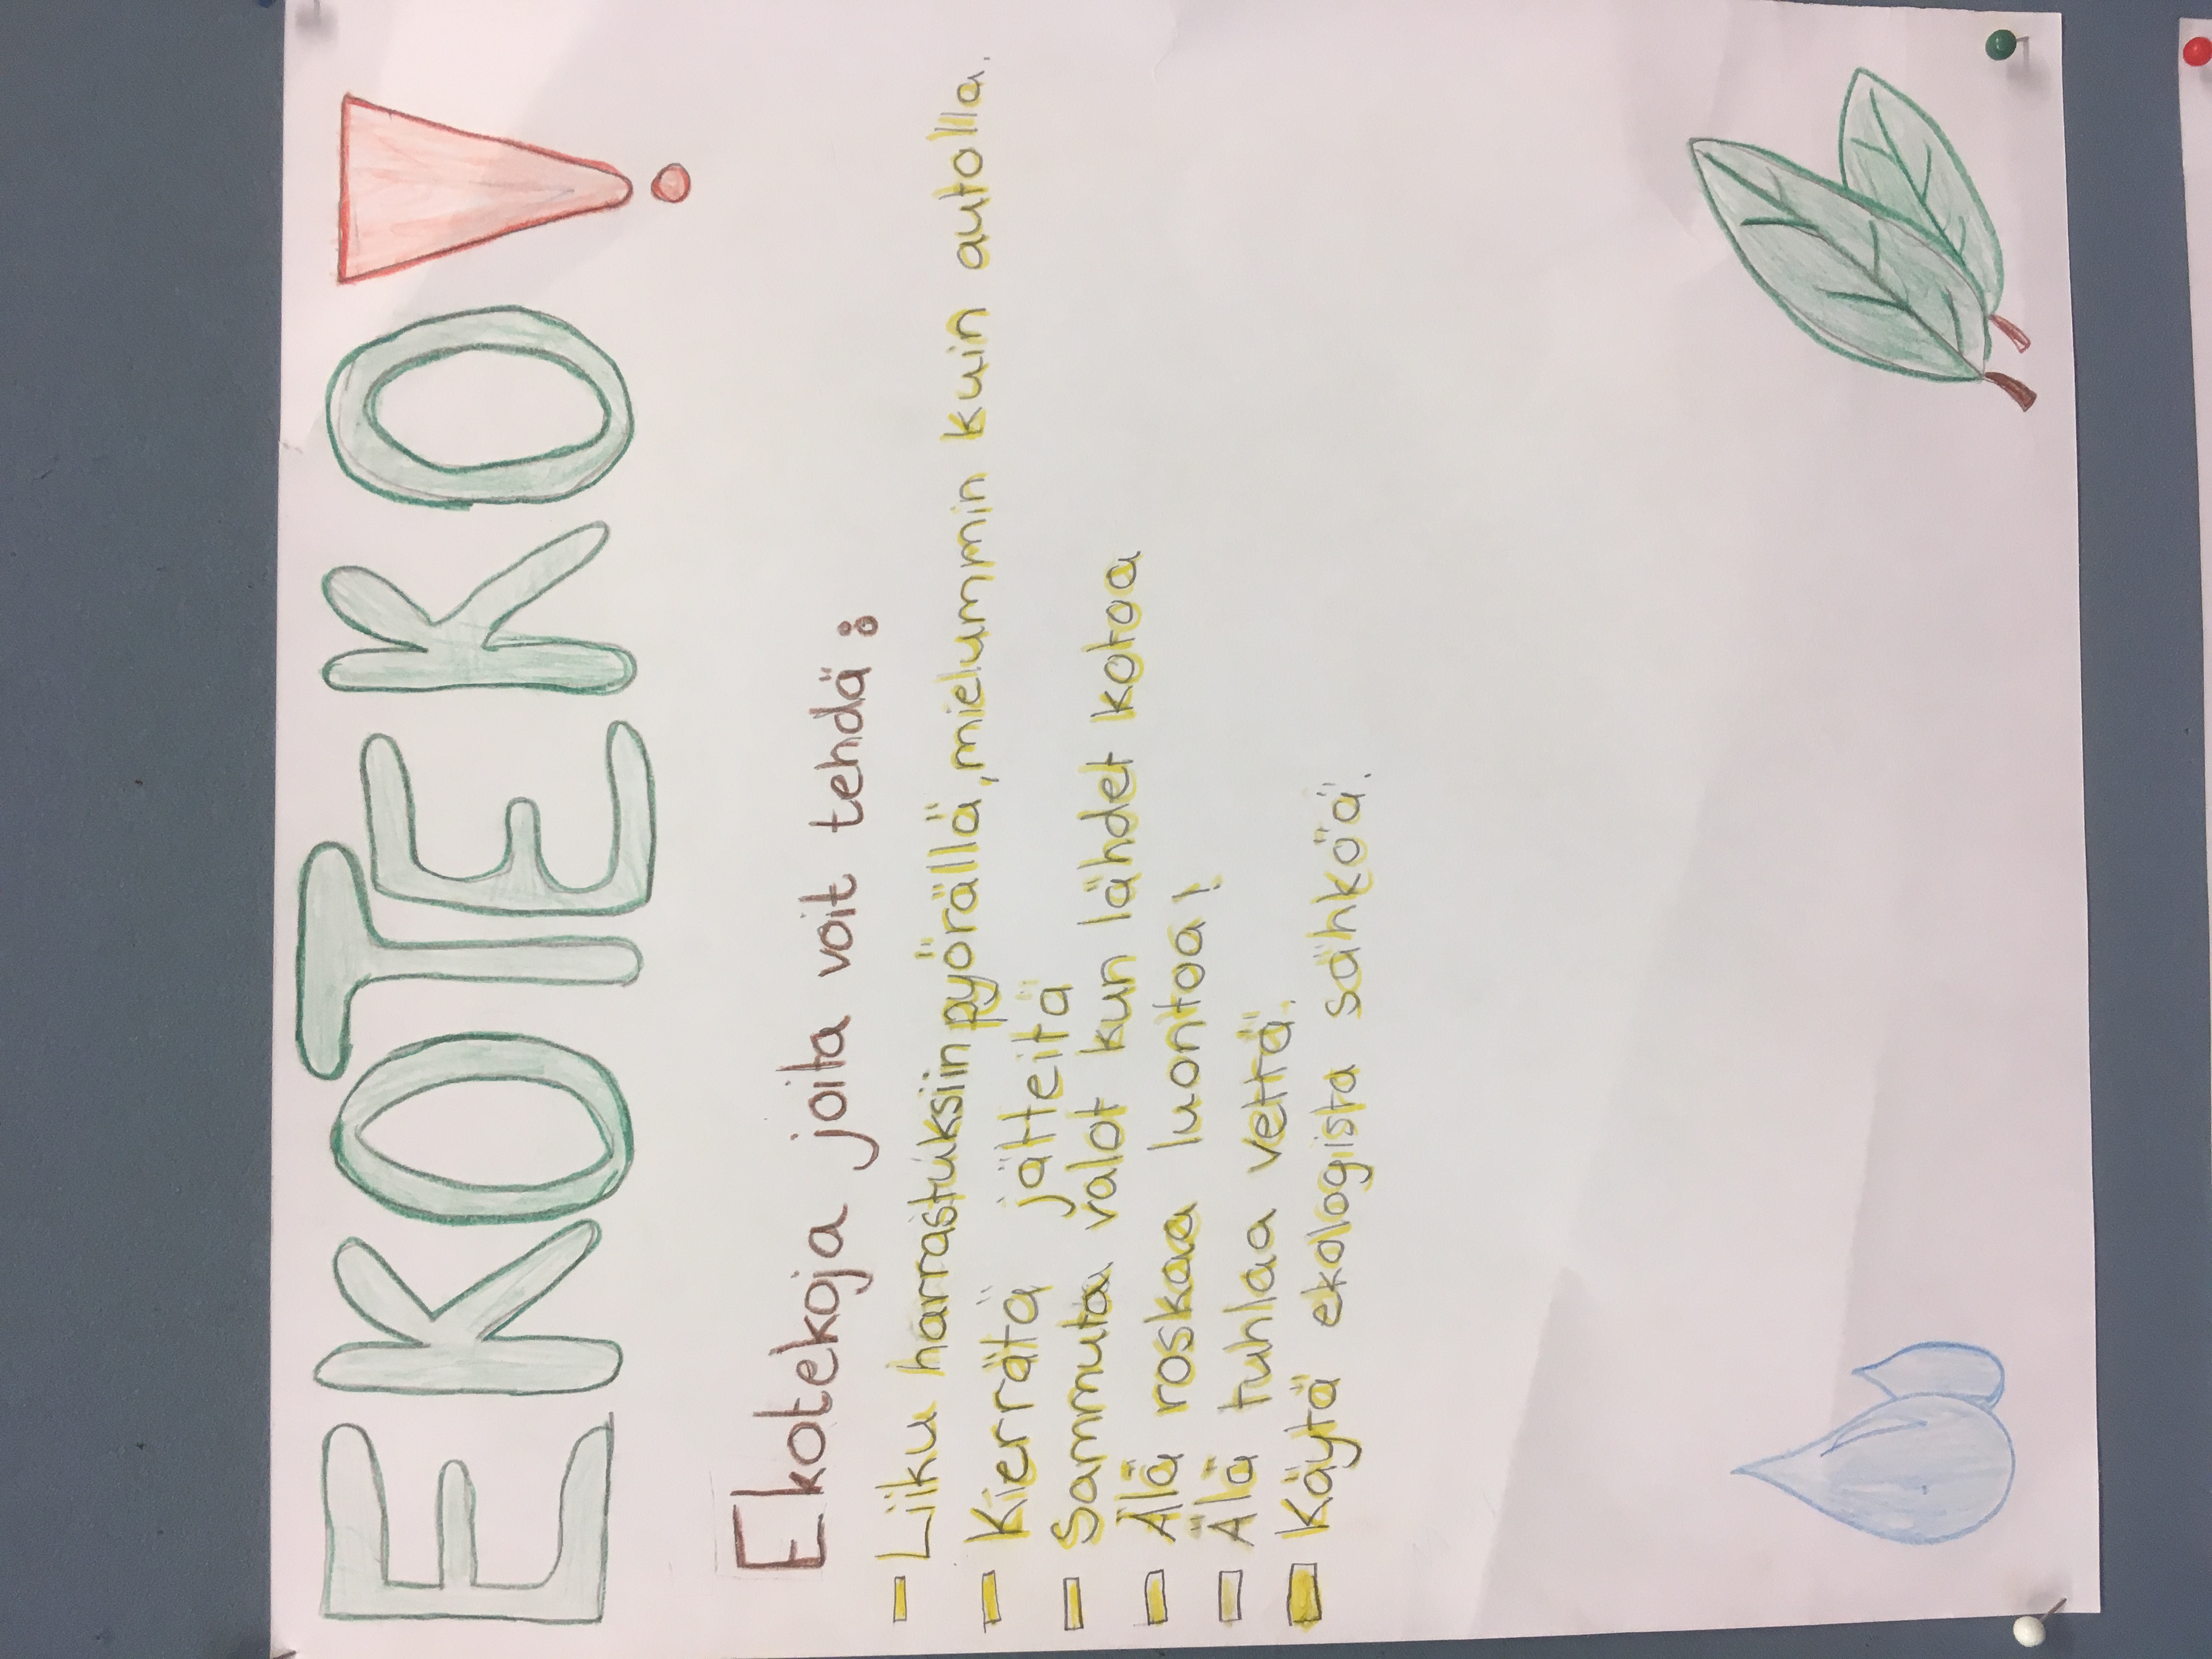 EKOTEKO!
Ekotekoja joita voit tehdä:
- Liiku harrastuksiin pyörällä, mielummin kuin autolla.
- Kierrätä jätteitä
- Sammuta valot kun lähdet kotoa
- Älä roskaa luontoa!
- Älä tuhlaa vettä.
- Käytä ekologista sähköä.